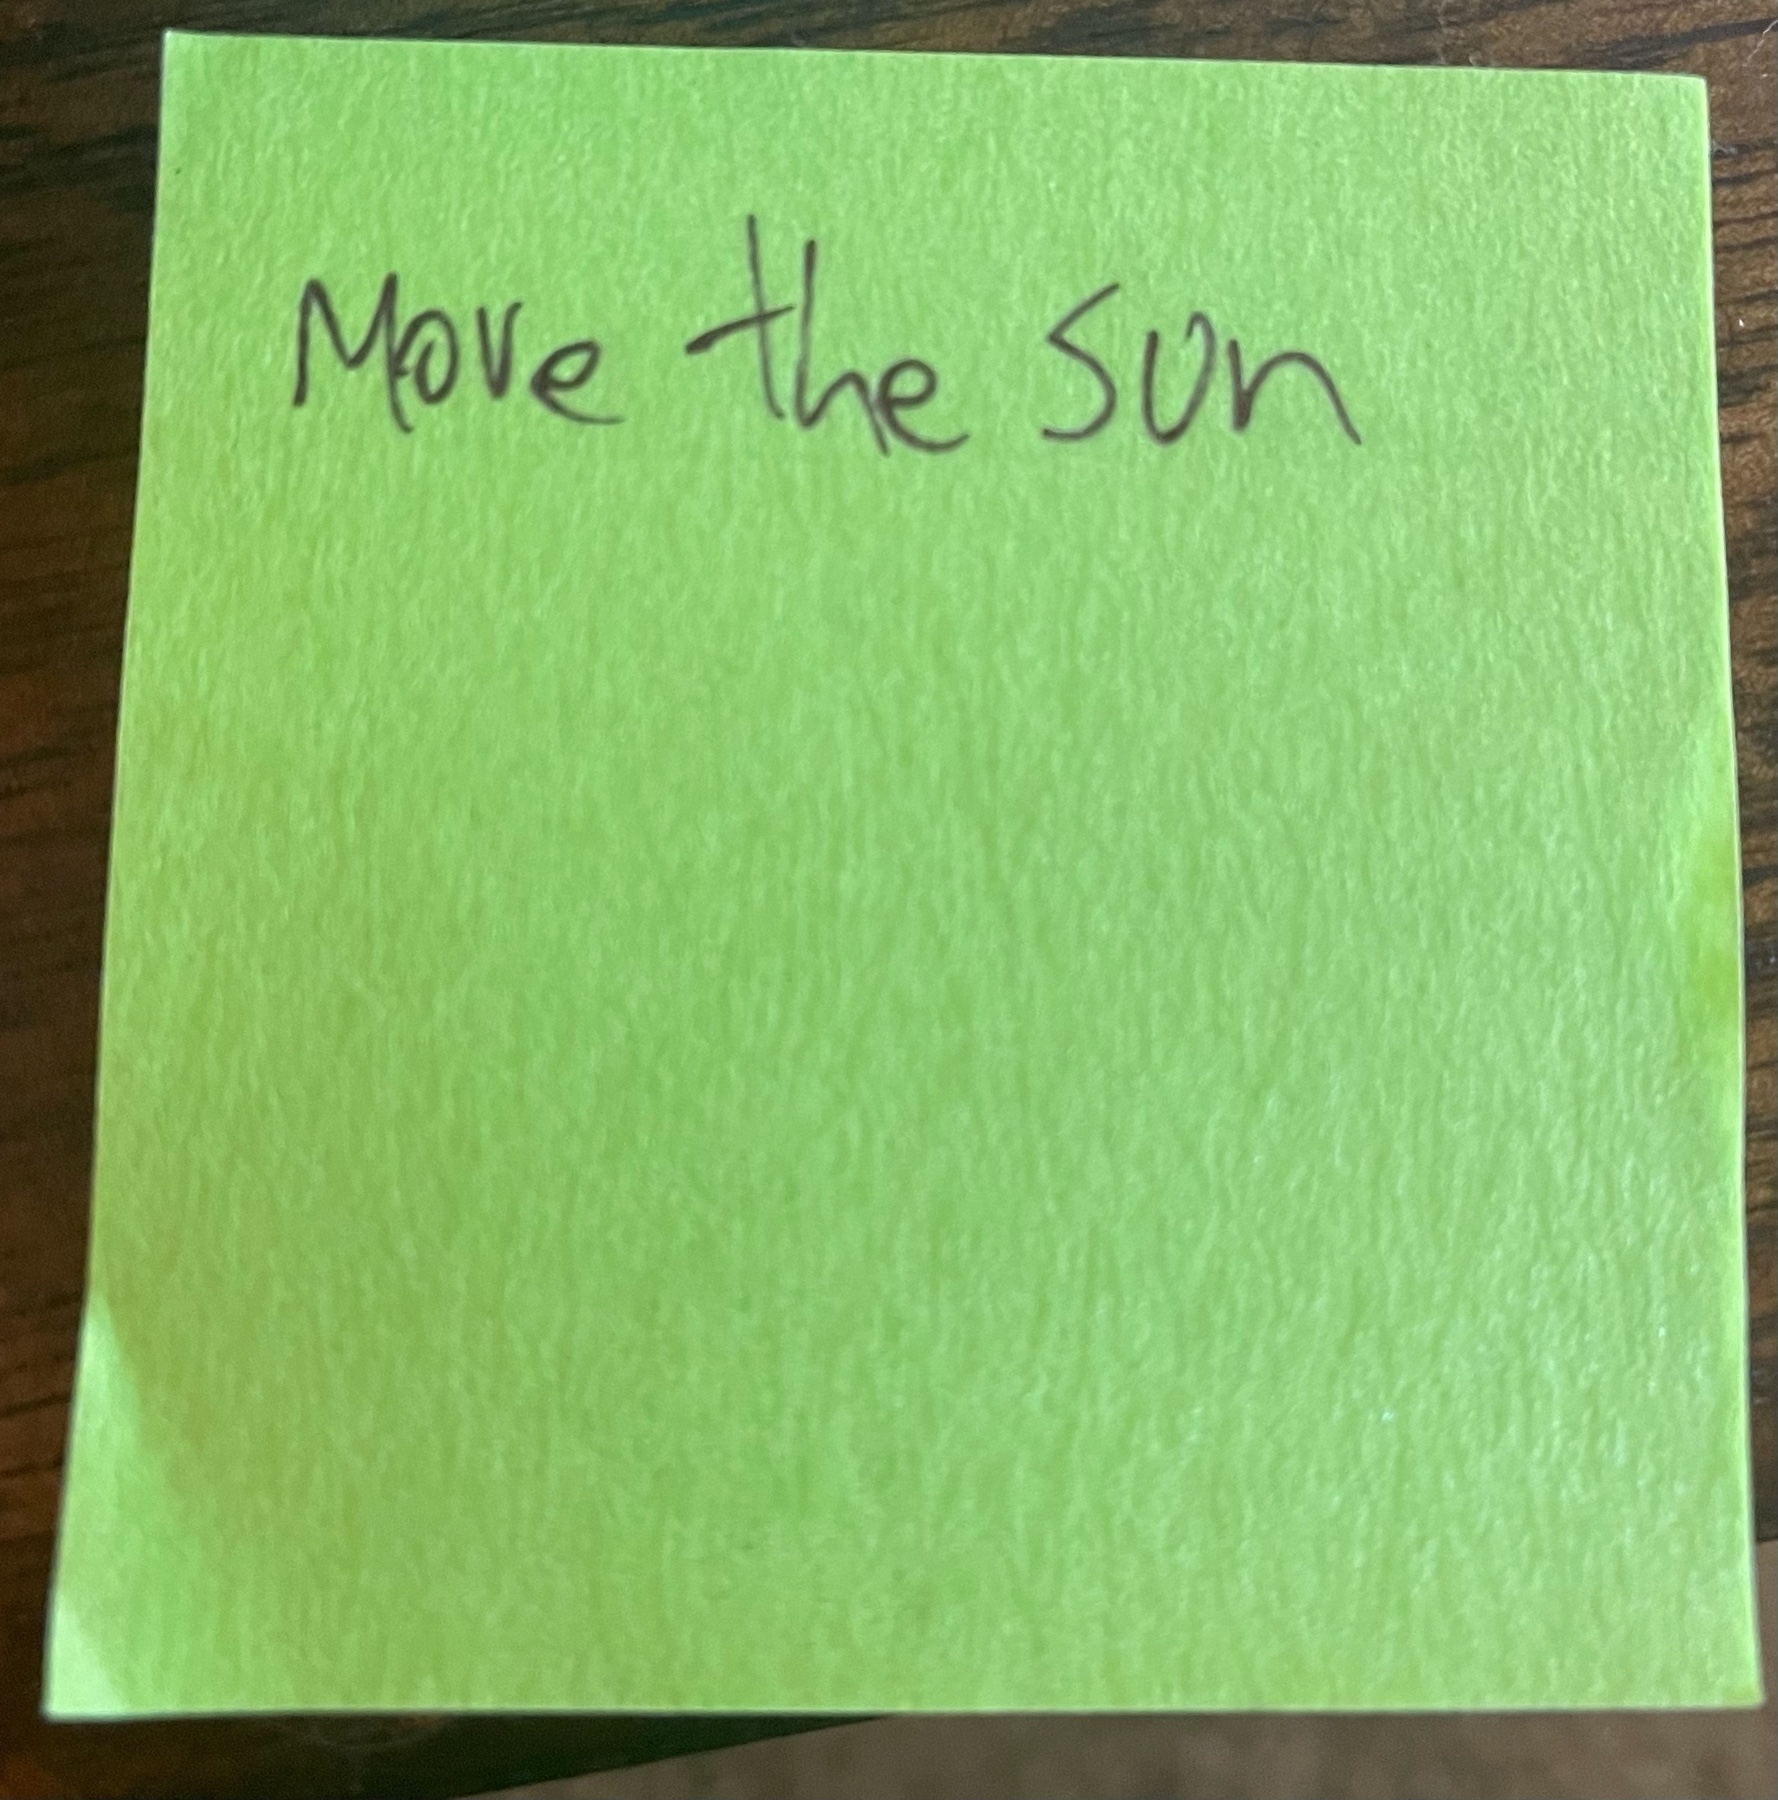 Move the sun